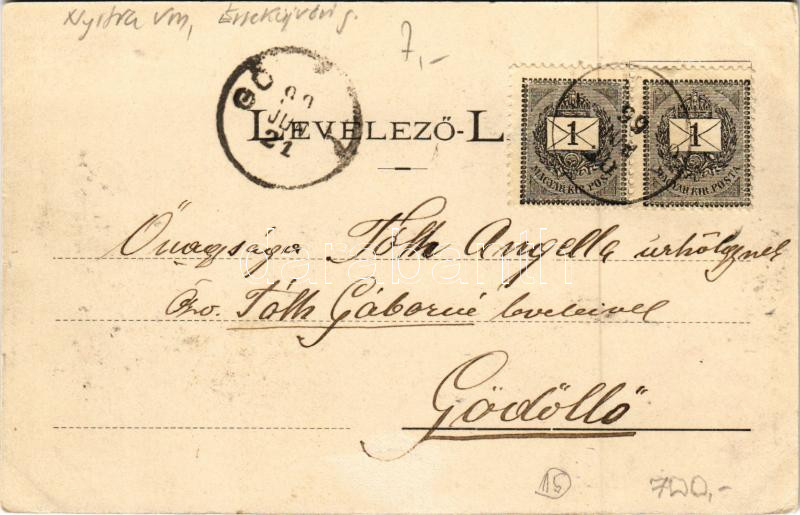 Nyitra vm, Érsekújvár j.
7,-
GÖ
99
JUL
21
LEVELEZŐ-L
1
MAGYAR KIR. POSTA
1
MAGYAR KIR. POSTA
99
Őnagysága Tóth Angella úrhölgynek
Özv. Tóth Gáborné leveleivel
Gödöllő
darabanth
15
700,-